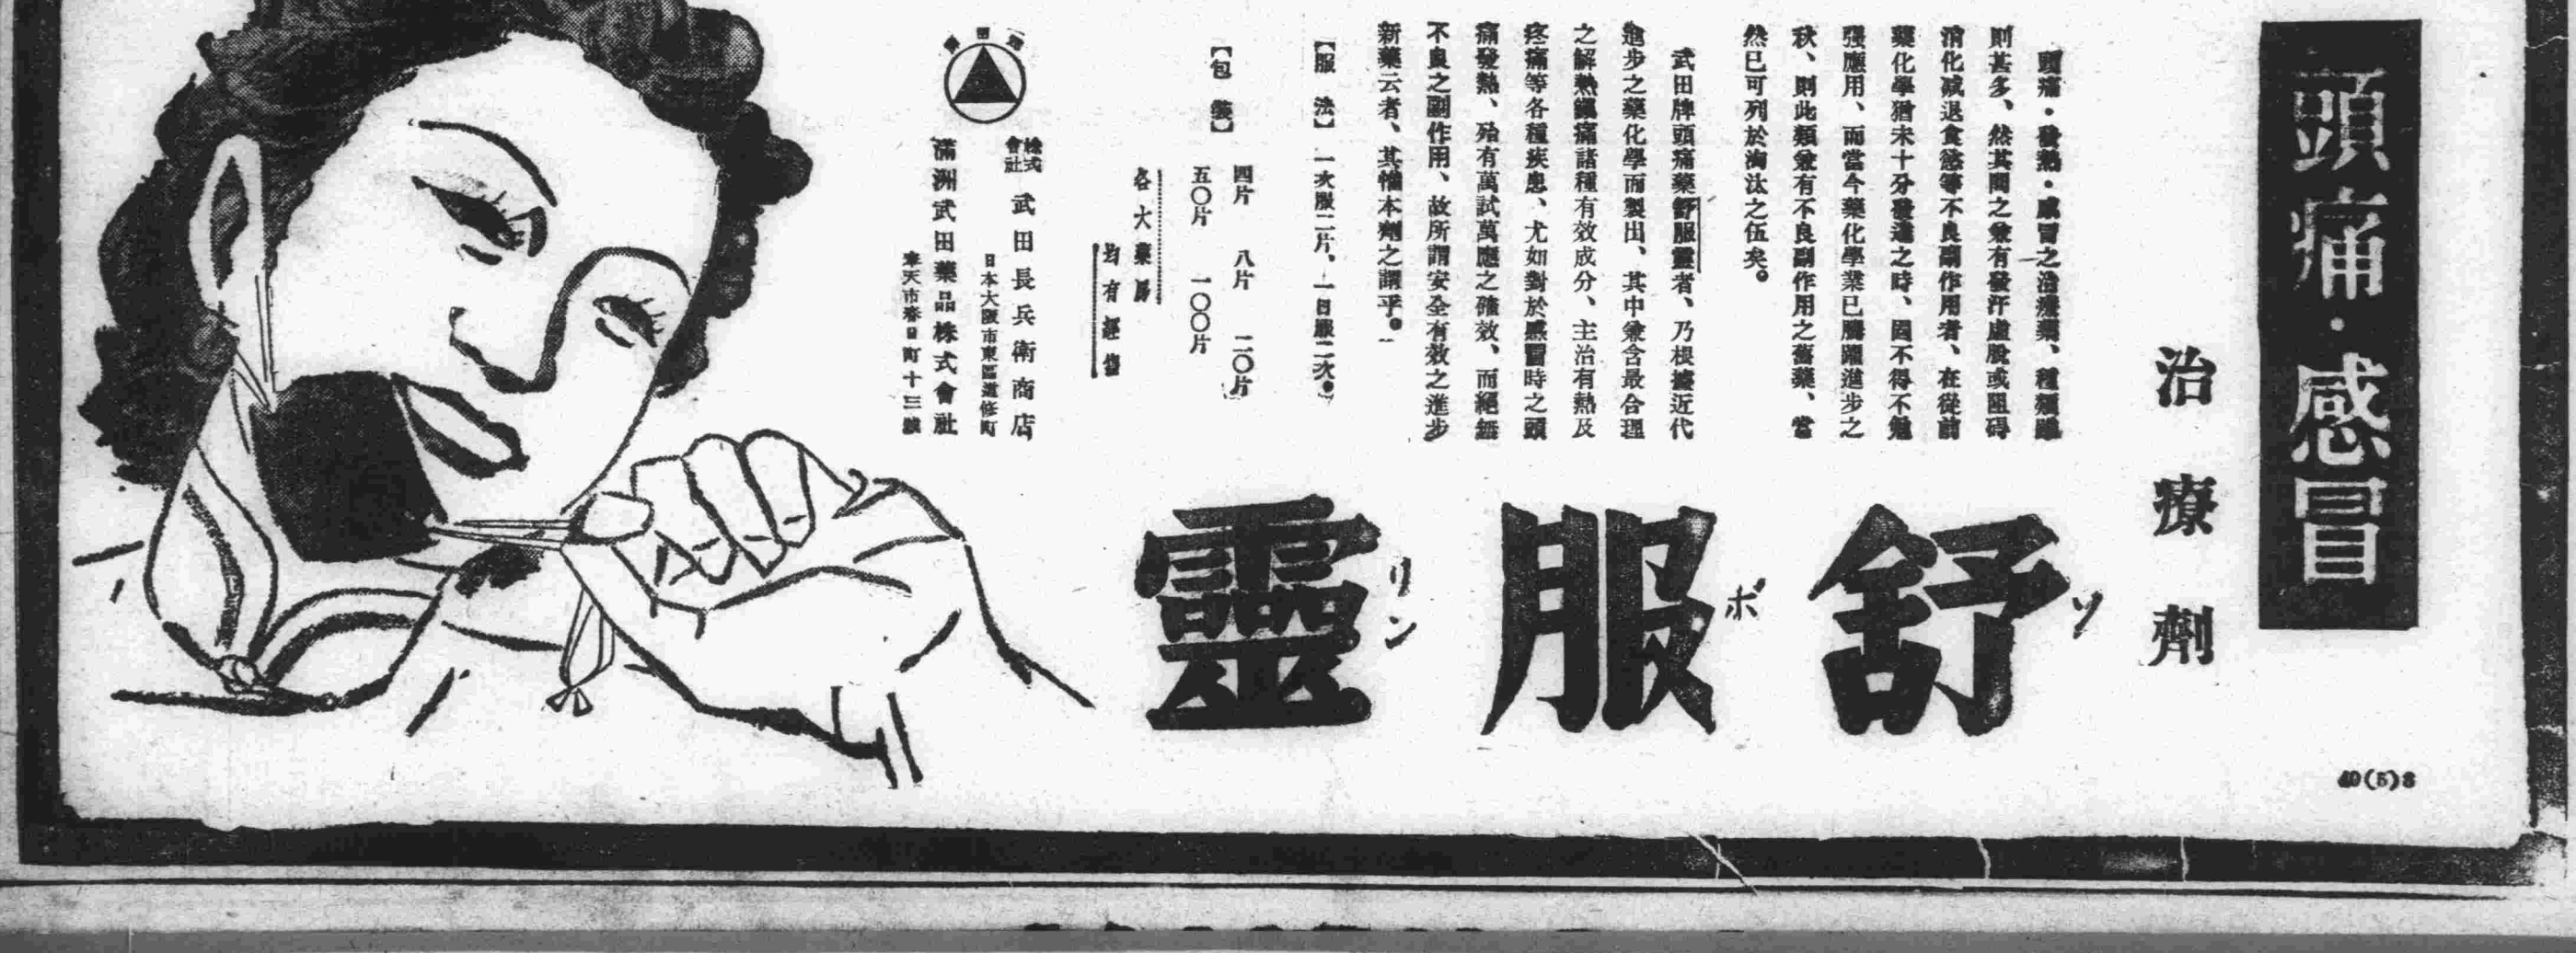 頭痛・感冒
治療劑
頭痛・發熱・感冒之治療藥、種類雖
則甚多、然其間之兼有發汗虛脫或阻碍
消化减退食慾等不良副作用者、在從前
藥化學猶未十分發達之時、固不得不勉
强應用、而當今藥化學業已騰躍進步之
秋、則此類兼有不良副作用之舊藥、當
然已可列於淘汰之伍矣。
武田牌頭痛藥舒服靈者、乃根據近代
進步之藥化學而製出、其中兼含最合理
之解熱鎭痛諸種有效成分、主治有熱及
疼痛等各種疾患、尤如對於感冒時之頭
痛發熱、殆有萬試萬應之確效、而絕無
不良之副作用、故所謂安全有效之進步
新藥云者、其惟本劑之謂乎。
【服法】一次服二片、一日服二次。
【包裝】
四片 八片 二〇片
五〇片 一〇〇片
各大藥房
均有經售
株式會社 武田長兵衛商店
日本大阪市東區道修町
滿洲武田藥品株式會社
奉天市春日町十三號
舒服靈
ソボリン
40(5)8